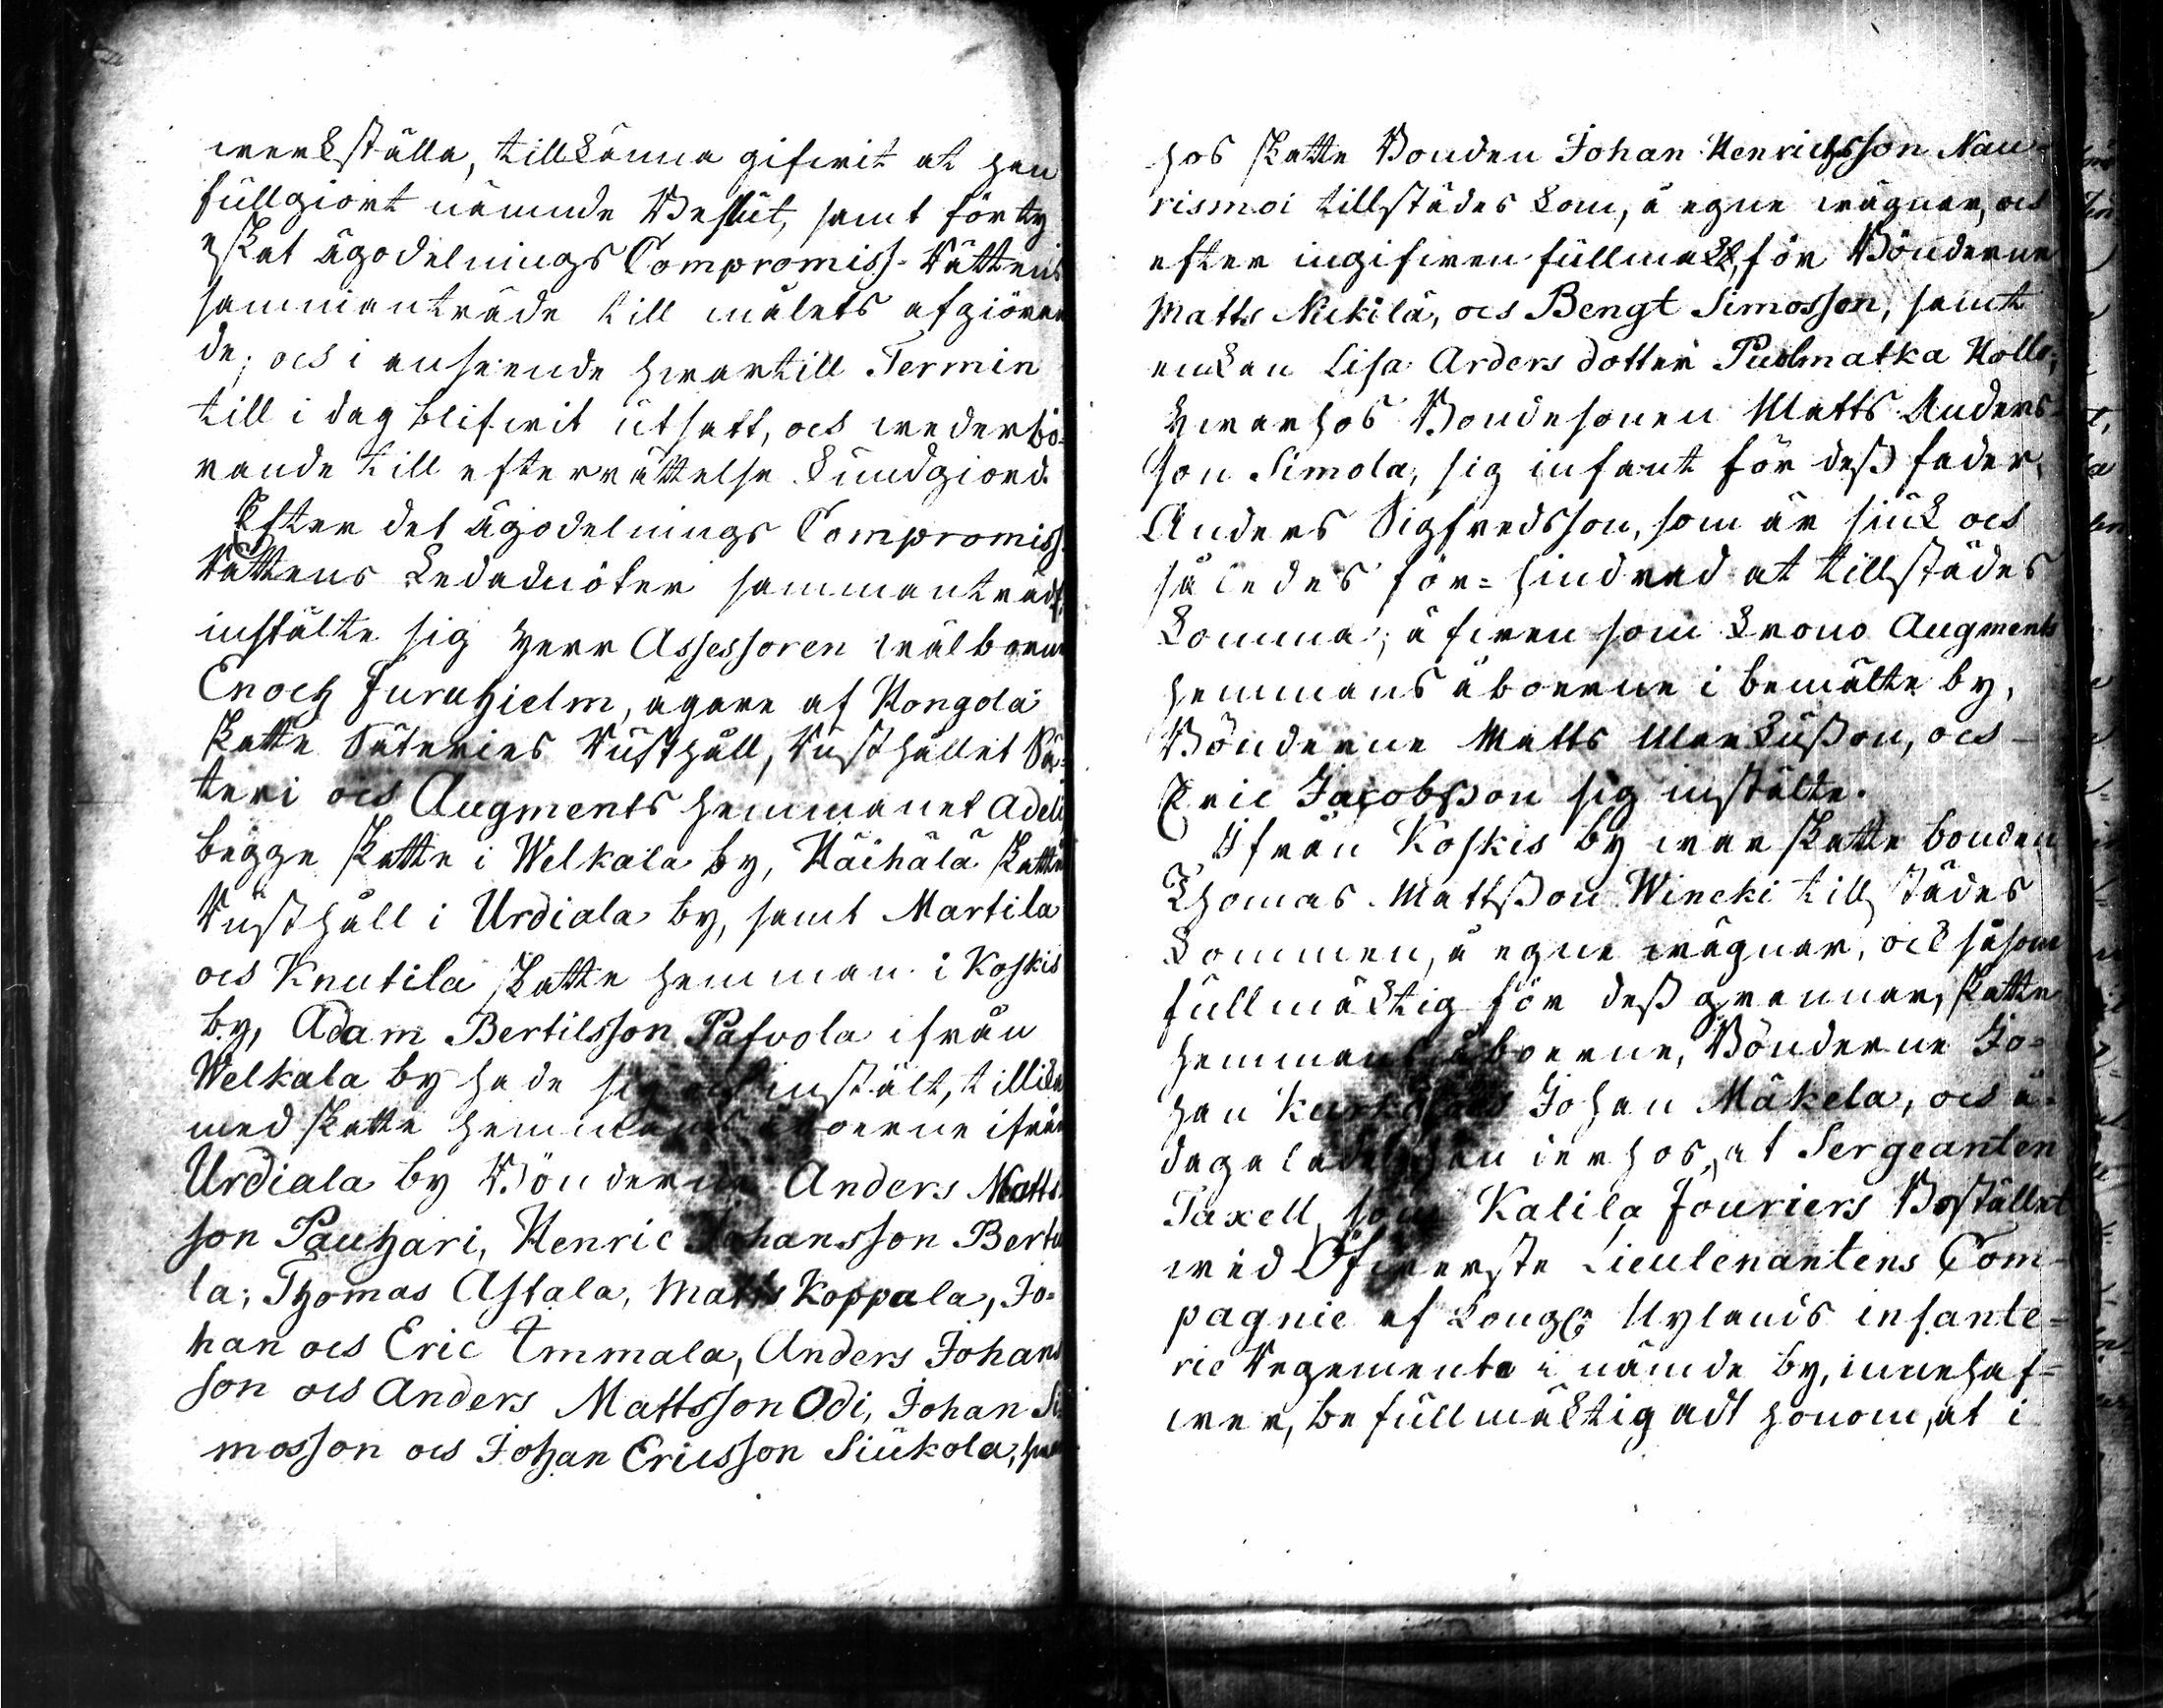 werkställa, tillkänna gifwit at han
fullgiort nämnde Beslut, samt förty
äskat ägodelnings Compromiss-Rättens
sammanträde till målets afgiöran
de; och i anseende hwartill Termin
till i dag blifwit utsatt, och wederbö=
rande till efterrättelse kundgiord.
Efter det ägodelnings Compromiss
Rättens Ledamöter sammanträdt,
instälte sig Herr Assessoren wälborne
Enoch Furuhielm, ägare af Hongola
skatte Säteries Rusthåll, Rusthållet Sä=
teri och Augments hemmanet Adell
begge skatte i Welkala by, Häihälä skatte
Rusthåll i Urdiala by, samt Martila
och Knutila skatte hemman i Koskis
by, Adam Bertilsson Pafvola ifrån
Welkala by hade sig och instält, tillika
med skatte hemmans åboerne ifrån
Urdiala by Bönderne Anders Matts
son Pauhari, Henric Johansson Bertu
la; Thomas Astala, Matts Koppala, Jo=
han och Eric Immala, Anders Johans
son och Anders Mattsson Odi, Johan Si
mosson och Johan Ericsson Siukola, hwar
hos skatte Bonden Johan Henrichsson Nau
rismoi tillstädes kom, å egne wägnar, och
efter ingifwen fullmakt, för Bönderne
Matts Nickilä, och Bengt Simosson, samt
enkan Lisa Anders dotter Puolmatka Holle;
Hwarhos Bondesonen Matts Anders=
son Simola, sig infant för dess fader,
Anders Sigfredsson, som är siuk och
således för=hindrad at tillstädes
komma; äfwen som krono Augments
hemmans åboerne i bemälte by,
Bönderne Matts Markusson, och
Eric Jacobsson sig instälte.
Ifrån Koskis by war skatte bonden
Thomas Mattsson Wincki tillstädes
kommen, å egne wägnar, och såsom
fullmäktig för dess grannar, skatte
hemmans åboerne, Bönderne Jo=
han och Johan Mäkela, och å=
dagalade han ierhos, at Sergeanten
Taxell, som Kalila Fouriers Bostället
wid Öfwerste Lieutenantens Com=
pagnie af kongl Nylands infante=
rie Regemente i nämde by, innehaf=
wer, befullmäktigadt honom, at i